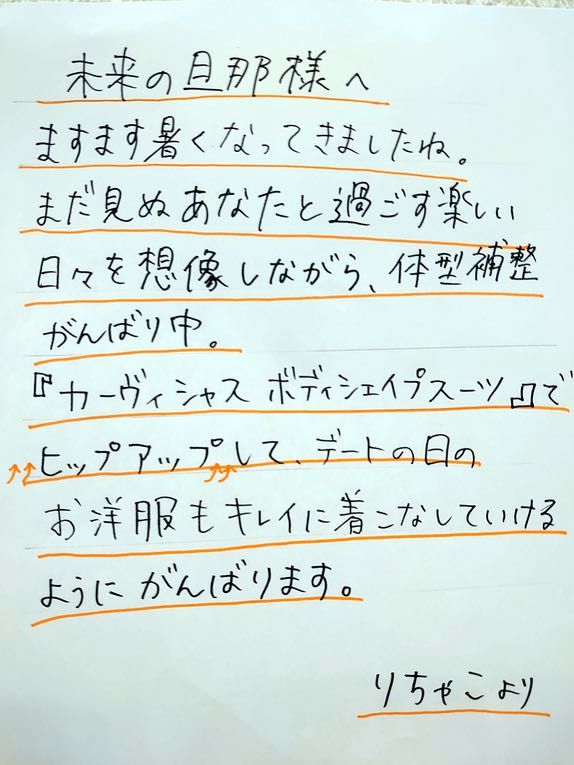 未来の旦那様へ
ますます暑くなってきましたね。
まだ見ぬあなたと過ごす楽しい
日々を想像しながら、体型補整
がんばり中。
『カーヴィシャス ボディシェイプスーツ』で
ヒップアップして、デートの日の
お洋服もキレイに着こなしていける
ようにがんばります。
りちゃこより